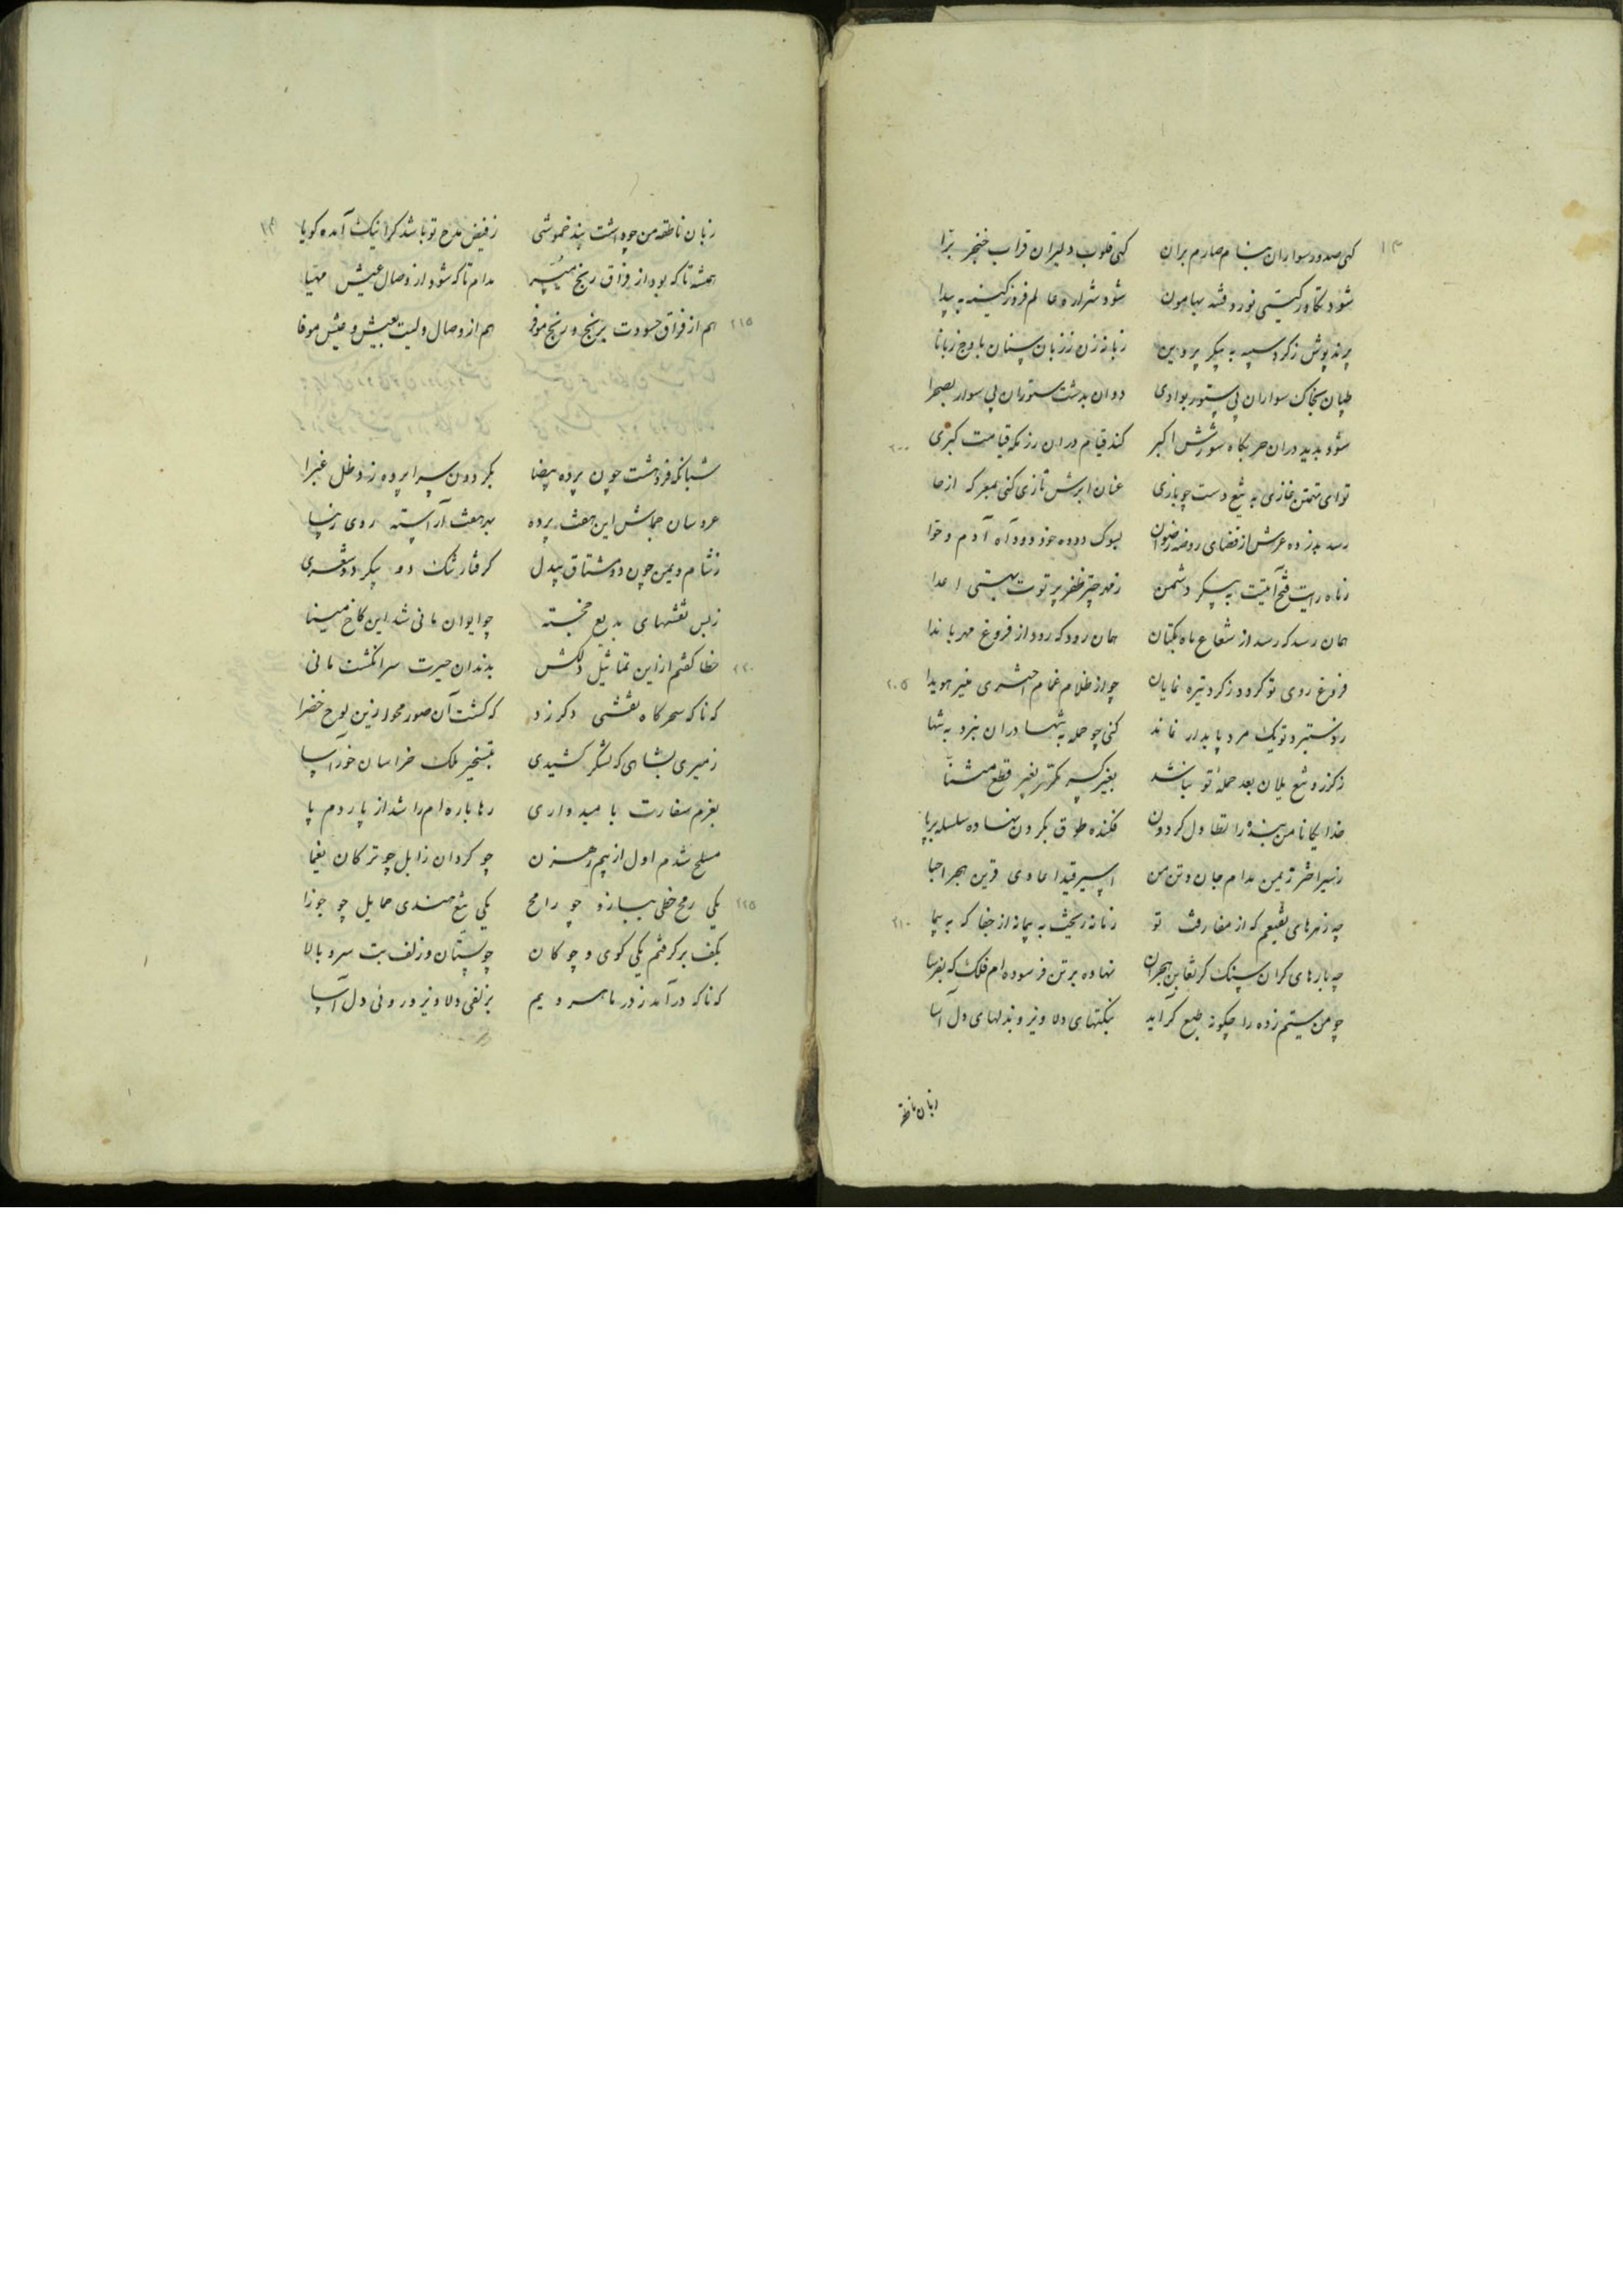 کنی صدور سواران نیام صارم بران کنی قلوب دلیران قراب خنجر برا
شود تکاور گیتی نورد فتنه بهامون شود شرار وغا عالم فروز کینه به پیدا
پرند پوش ز کرد سپه به پیکر پروین زبانه زن ز زبان سنان باوج زبانا
طپان بخاک سواران بی ستور بوادی دوان بدشت ستوران بی سوار بصحرا
۲۰۰ شود پدید دران حربکاه شورش اکبر کند قیام دران رزمکه قیامت کبری
تو ای تهمتن غازی به تیغ دست چو یازی عنان ابرش تازی کنی بمعرکه ارخا
رسد بذروه عرش از فضای روضه رضوان بسوک دوده خود دود آه آدم و حوا
ز ماه رایت فتح آیتت به پیکر دشمن ز مهر چتر ظفر پرتوت بهستی اعدا
همان رسد که رسد از شعاع ماه بکتان همان رود که رود از فروغ مهر باندا
۲۰۵ فروغ روی تو کردد ز کرد تیره نمایان چو از ظلام غمام اختری منیر هویدا
ز دستبرد تو یک مرد پایدار نماند کنی چو حمله به تنها دران نبرد به تنها
ز کرز و تیغ یلان بعد حمله تو نباشد بغیر کسر مکرر بغیر قطع مثنا
خدایکانا من بنده را تطاول کردون فکنده طوق بکردن نهاده سلسله بر پا
ز سیر اختر ریمن مدام جان و تن من اسیر قید اعادی قرین هجر احبا
۲۱۰ چه زهرهای نقیعم که از مفارقت تو زمانه ریخت به پیمانه از جفا که به پیما
چه بارهای کران سنک کز تغابن هجران نهاده بر تن فرسوده ام فلک که بفرسا
چو من ستم زده را چکونه طبع کراید بنکتهای دلاویز و بذلهای دل آسا
زبان ناطقه
زبان ناطقه من چو داشت بند خموشی ز فیض مدح تو باشد کر اینک آمده کویا
همیشه تا که بود از فراق رنج میسر مدام تا که شود از وصال عیش مهیا
۲۱۵ هم از فراق حسودت برنج و رنج موفر هم از وصال ولیت بعیش و عیش موفا
شبانکه فروهشت چون پرده بیضا بکردون سراپرده زد ظل غبرا
عروسان جماش این هفت پرده بهر هفت آراسته روی زیبا
ز شام و یمن چون دو مشتاق بیدل کرفتار تنک دو پیکر دو شعری
ز بس نقشهای بدیع خجسته چو ایوان مانی شد این کاخ مینا
۲۲۰ خطا کفتم از این تماثیل دلکش بدندان حیرت سر انکشت مانی
که ناکه سحرکاه نقشی دکر زد که کشت آن صور محو ازین لوح خضرا
ز میری بشاهی که لشکر کشیدی بتسخیر ملک خراسان خور آسا
بعزم سفارت بامیدواری رها باره ام را شد از پاردم پا
مسلح شدم اول از بیم رهزن چو کردان زابل چو ترکان یغما
۲۲۵ یکی رمح خطی ببازو چو رامح یکی تیغ هندی حمایل چو جوزا
بکف بر کرفتم یکی کوی و چوکان چو پستان و زلف بت سرو بالا
که ناکه درآمد ز در ماهرویم بزلفی دلاویز و روئی دل آسا